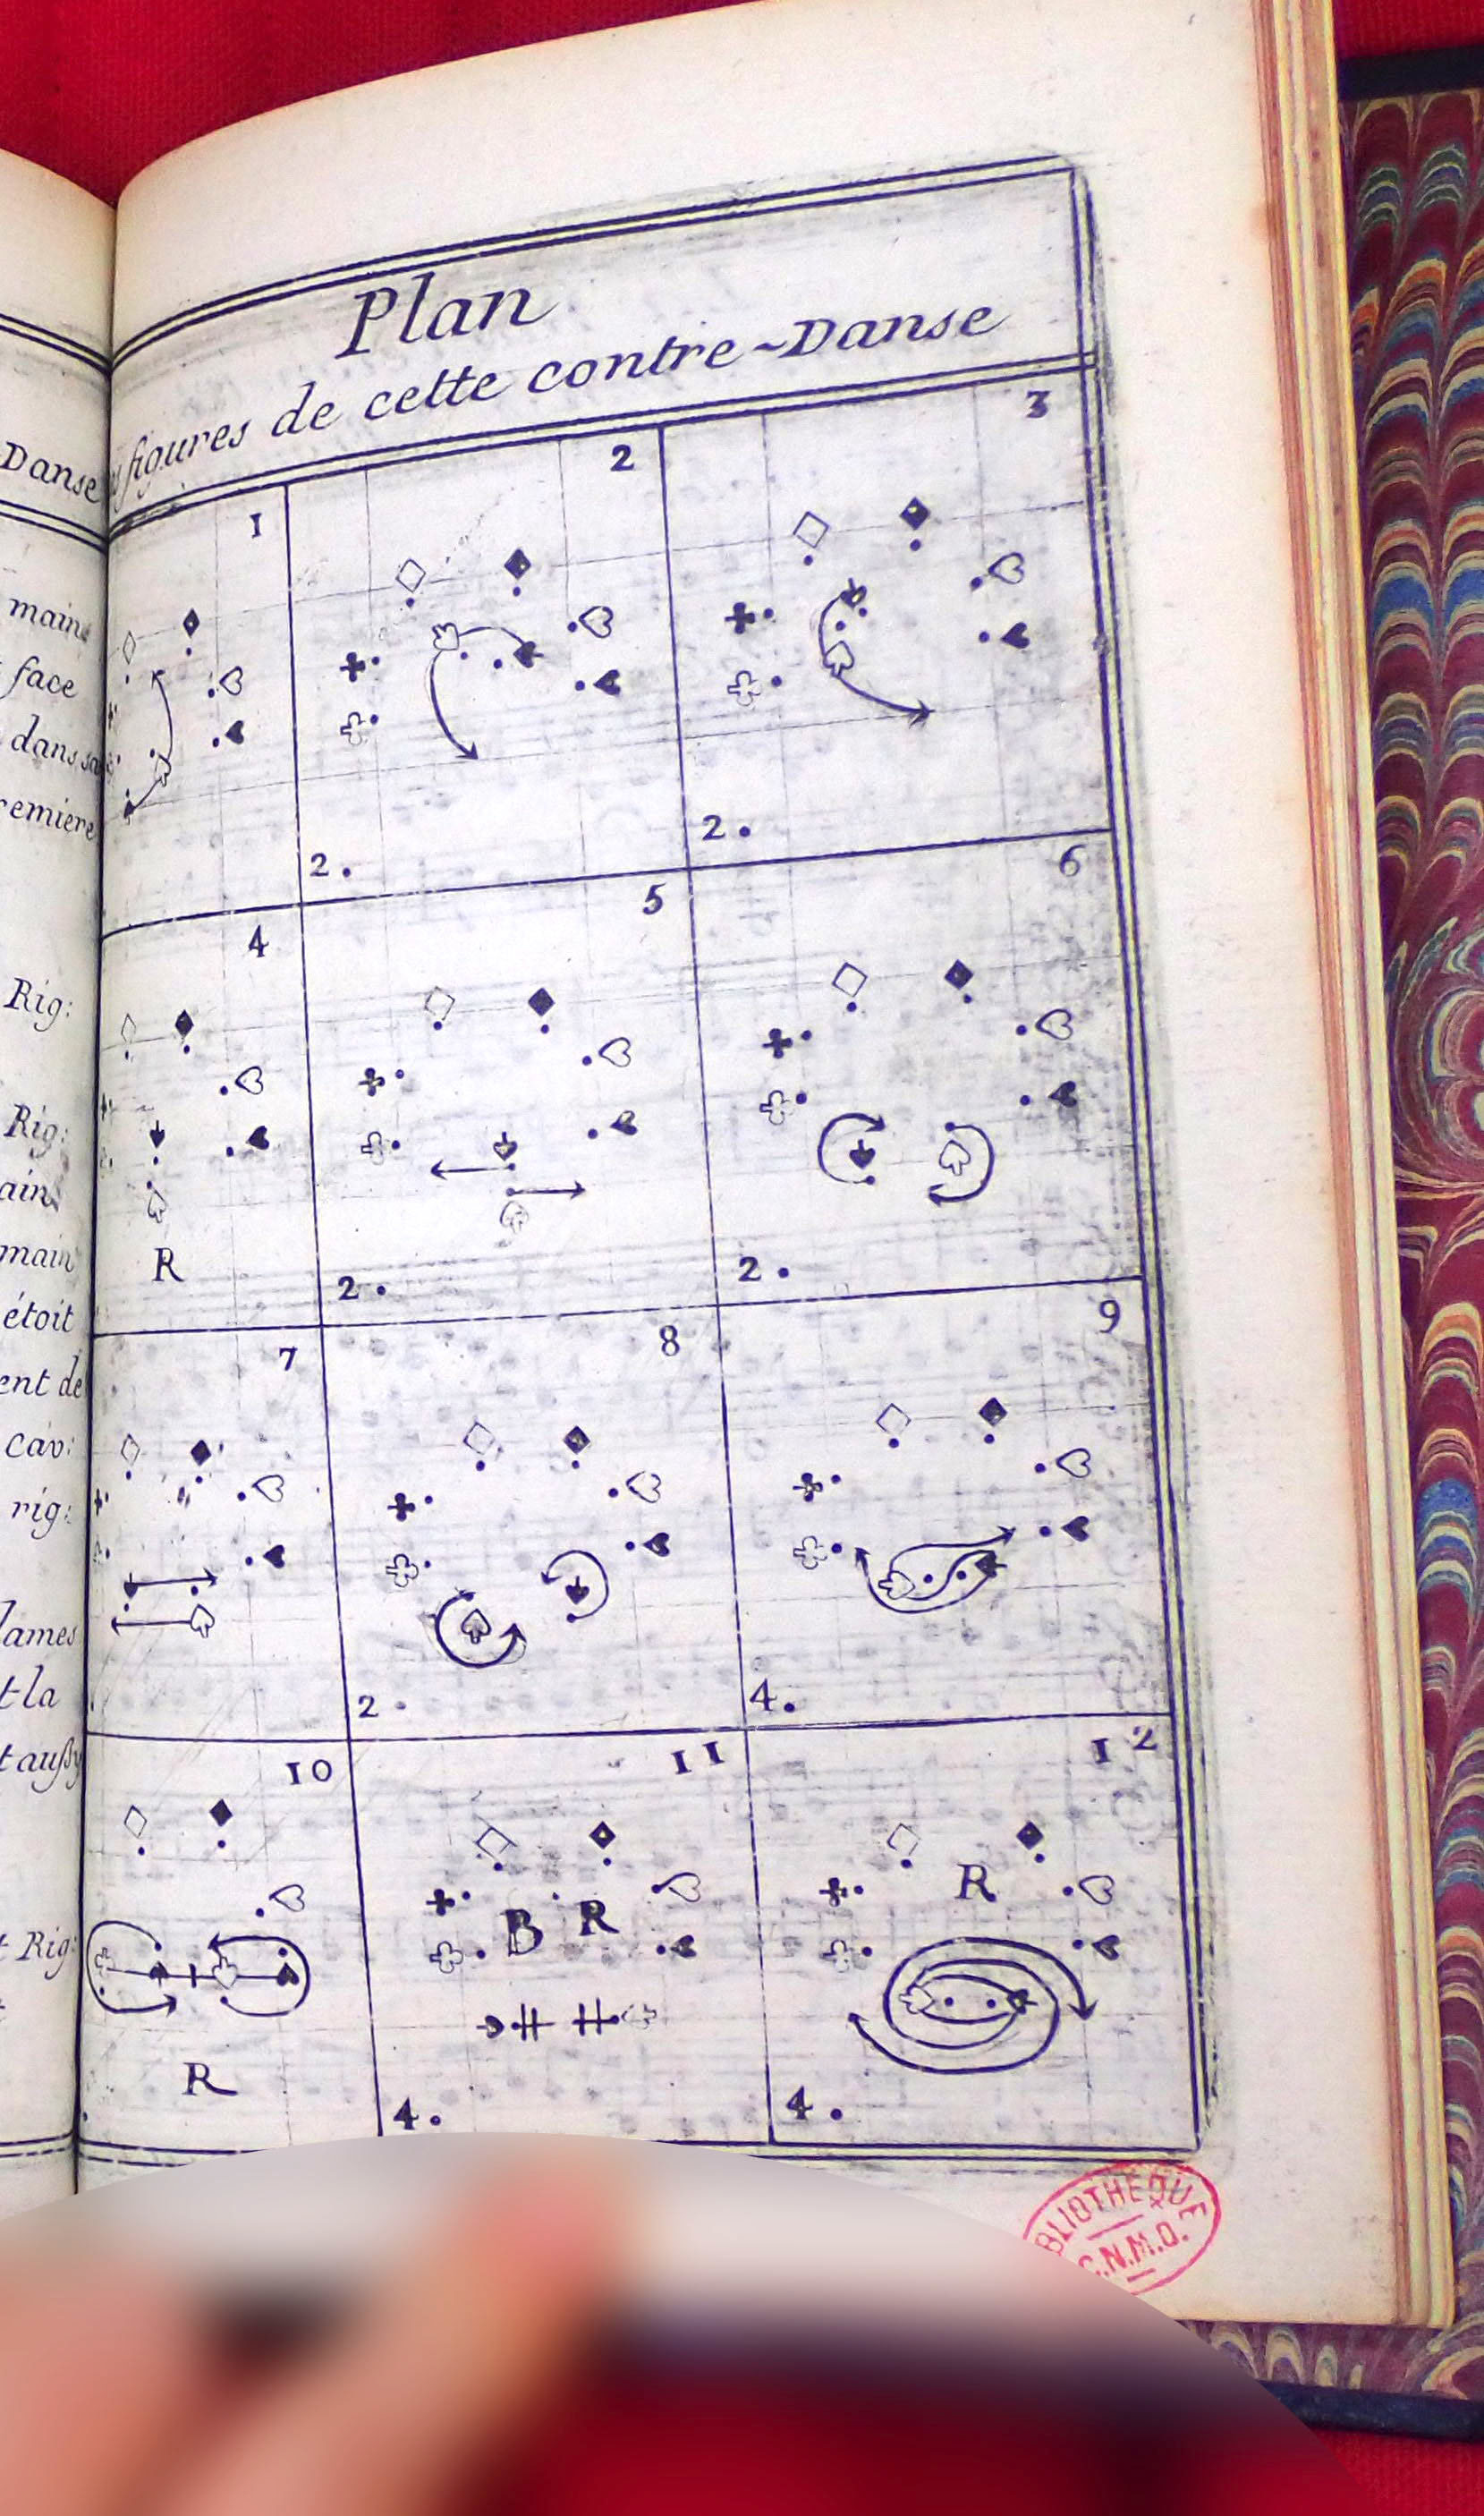 Danse
main
face
dans sa
Rig:
Rig:
main
étoit
cav:
rig:
t la
Rig:
Plan
figures de cette contre-Danse
1
2
3
2.
2.
4
5
6
R
2.
2.
7
8
9
2.
4.
10
11
12
B R
R
R
4.
4.
BLIOTHÈQUE
C.N.M.D.